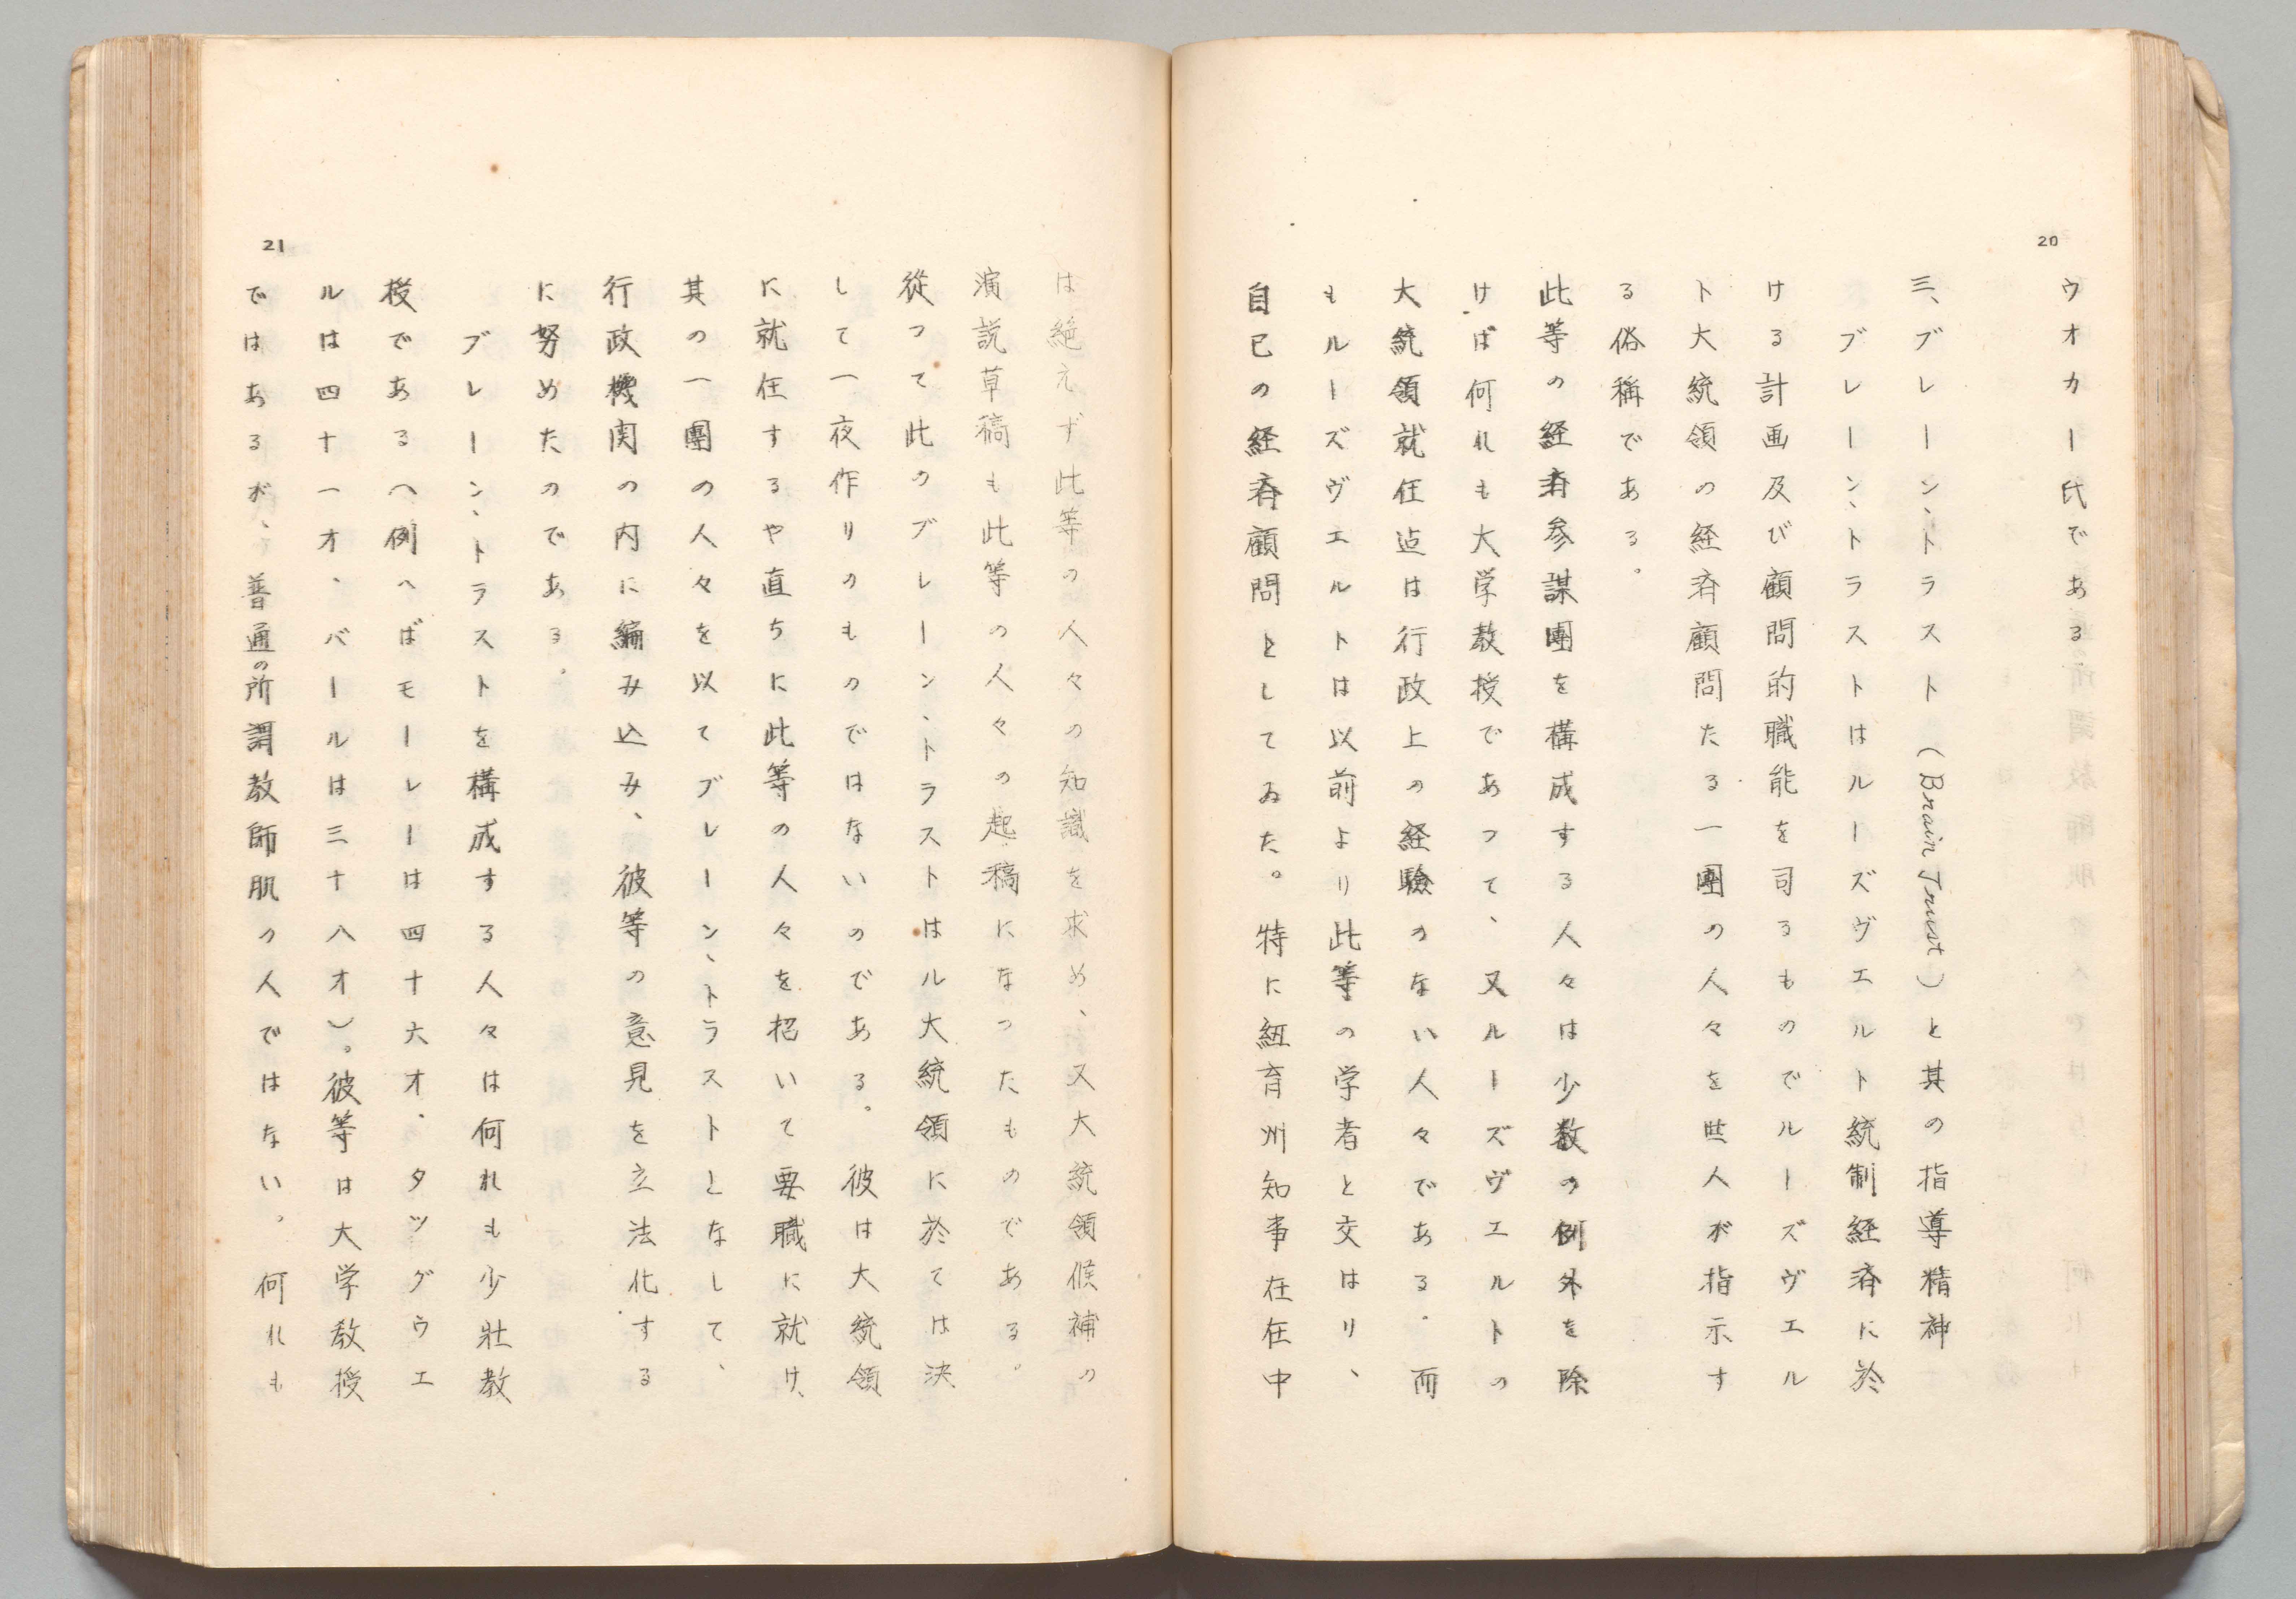 20
ウオカー氏である
三、ブレーン、トラスト(Brain Trust)と其の指導精神
ブレーン、トラストはルーズヴエルト統制経済に於
ける計画及び顧問的職能を司るものでルーズヴエル
ト大統領の経済顧問たる一團の人々を世人が指示す
る俗稱である。
此等の経済参謀團を構成する人々は少数の例外を除
けば何れも大学教授であつて、又ルーズヴエルトの
大統領就任迠は行政上の経驗のない人々である。而
もルーズヴエルトは以前より此等の学者と交はり、
自己の経済顧問としてゐた。特に紐育州知事在任中
は絶えず此等の人々の知識を求め、又大統領候補の
演説草稿も此等の人々の起稿になつたものである。
從つて此のブレーン、トラストはル大統領に於ては決
して一夜作りのものではないのである。彼は大統領
に就任するや直ちに此等の人々を招いて要職に就け、
其の一團の人々を以てブレーン、トラストとなして、
行政機関の内に編み込み、彼等の意見を立法化する
に努めたのである。
ブレーン、トラストを構成する人々は何れも少壮教
授である(例へばモーレーは四十六才、タツグウエ
ルは四十一才、バールは三十八才)。彼等は大学教授
ではあるが、普通の所謂教師肌の人ではない。何れも
21